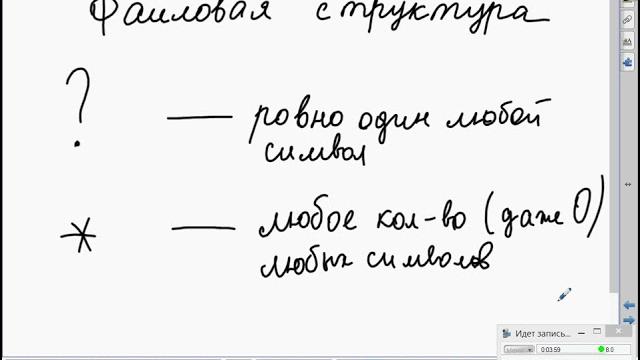 Файловая структура
? — ровно один любой
символ
* — любое кол-во (даже 0)
любых символов
Идет запись...
0:03:59
8.0